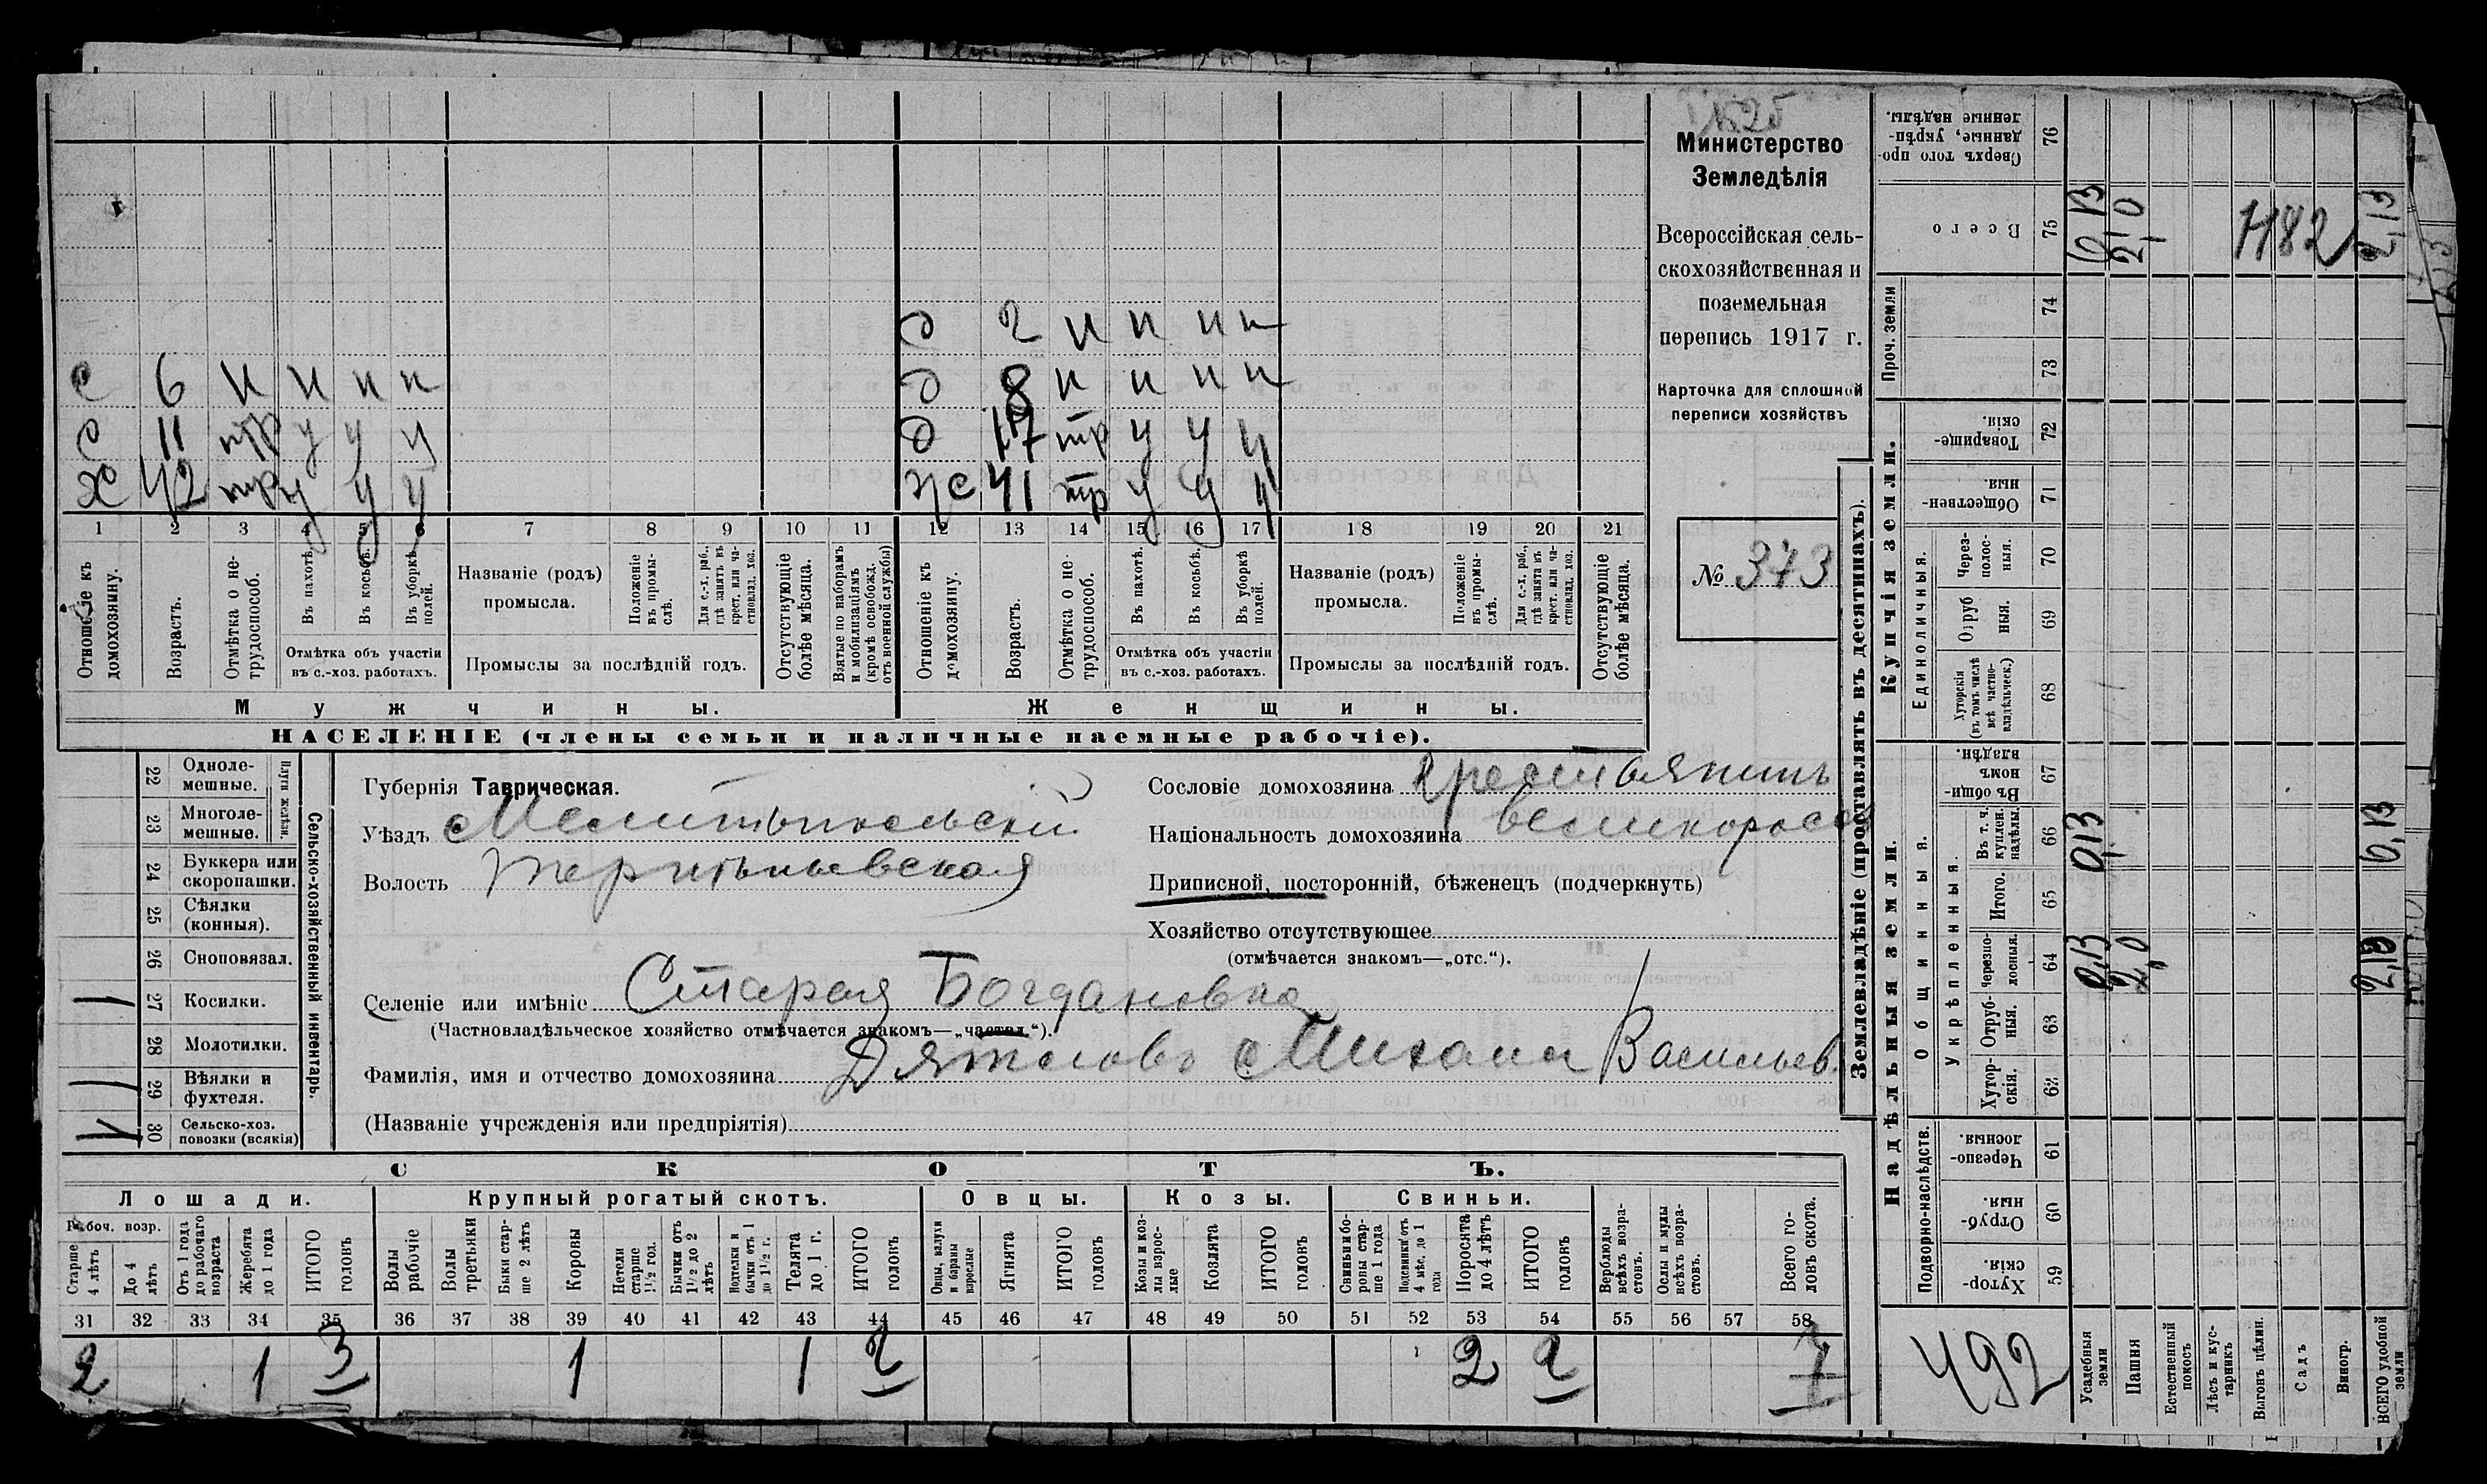 Министерство
Земледѣлія
Всероссійская сель-
скохозяйственная и
поземельная
перепись 1917 г.
Карточка для сплошной
переписи хозяйствъ
№ 373
д 2 н н н н
с 6 н н н н
д 8 н н н н
с 11 тр у у у
д 17 тр у у у
х 42 тр у у у
ж 41 тр у у у
1 2 3 4 5 6 7 8 9 10 11 12 13 14 15 16 17 18 19 20 21
Отношеніе къ домохозяину.
Возрастъ.
Отмѣтка о не-трудоспособ.
Въ пахотѣ.
Въ косьбѣ.
Въ уборкѣ полей.
Отмѣтка объ участіи
въ с.-хоз. работахъ.
Названіе (родъ)
промысла.
Положеніе въ промы-слѣ.
Для с.-х. раб., гдѣ занятъ въ крест. или ча-стновлад. хоз.
Промыслы за послѣдній годъ.
Отсутствующіе болѣе мѣсяца.
Взятые по наборамъ и мобилизаціямъ (кромѣ освобожд. отъ военной службы)
Отношеніе къ домохозяину.
Возрастъ.
Отмѣтка о не-трудоспособ.
Въ пахотѣ.
Въ косьбѣ.
Въ уборкѣ полей.
Отмѣтка объ участіи
въ с.-хоз. работахъ.
Названіе (родъ)
промысла.
Положеніе въ промы-слѣ.
Для с.-х. раб., гдѣ занята въ крест. или ча-стновлад. хоз.
Промыслы за послѣдній годъ.
Отсутствующіе болѣе мѣсяца.
Мужчины. Женщины.
НАСЕЛЕНІЕ (члены семьи и наличные наемные рабочіе).
Сельско-хозяйственный инвентарь.
Плуги желѣзн.
22 Одноле-мешные.
23 Многоле-мешные.
24 Буккера или скоропашки.
25 Сѣялки (конныя).
26 Сноповязал.
27 Косилки. 1
28 Молотилки.
29 Вѣялки и фухтеля. 1
30 Сельско-хоз. повозки (всякія)
Губернія Таврическая.
Уѣздъ Мелитопольскій
Волость
Сословіе домохозяина Крестьянинъ
Національность домохозяина великороссъ
Приписной, посторонній, бѣженецъ (подчеркнуть)
Хозяйство отсутствующее
(отмѣчается знакомъ—„отс.“).
Селеніе или имѣніе Старая Богдановка
(Частновладѣльческое хозяйство отмѣчается знакомъ—„частвл.“).
Фамилія, имя и отчество домохозяина Дятловъ Михаил Васильев.
(Названіе учрежденія или предпріятія)
СКОТЪ.
Лошади. Крупный рогатый скотъ. Овцы. Козы. Свиньи.
Рабоч. возр.
Старше 4 лѣтъ
До 4 лѣтъ
Отъ 1 года до рабочаго возраста
Жеребята до 1 года
ИТОГО головъ
Волы рабочіе
Волы третьяки
Быки стар-ше 2 лѣтъ
Коровы
Нетели старше 1½ год.
Бычки отъ 1½ до 2 лѣтъ
Подтелки и бычки отъ 1 до 1½ г.
Телята до 1 г.
ИТОГО головъ
Овцы, валухи и бараны взрослые
Ягнята
ИТОГО головъ
Козы и коз-лы взрос-лые
Козлята
ИТОГО головъ
Свиньи бо-ровы стар-ше 1 года
Подсвинки отъ 4 мѣс. до 1 года
Поросята до 4 лѣтъ
ИТОГО головъ
Верблюды всѣхъ возра-стовъ.
Ослы и мулы всѣхъ возра-стовъ.
Всего го-ловъ скота.
31 32 33 34 35 36 37 38 39 40 41 42 43 44 45 46 47 48 49 50 51 52 53 54 55 56 57 58
2 1 3 1 1 2 2 2 7
Землевладѣніе (проставлять въ десятинахъ).
Купчія земли.
Надѣльныя земли.
Сверхъ того про-данные, укрѣп-ленные надѣлы. 76
Всего 75 0,13 2,0 1182 2,13
Проч. земли 74 73
Товарище-скія. 72
Обществен-ныя. 71
Единоличныя.
Через-полос-ныя. 70
Отруб ныя. 69
Хуторскія (въ томъ числѣ всѣ частно-владѣльческ.) 68
Общинныя.
Въ общи-номъ владѣн. 67
Укрѣпленныя.
Въ т. ч. куплен. надѣлы. 66 0,13 0,13
Итого. 65
Черезпо-лосныя. 64 0,13 2,0 2,13
Отруб-ныя. 63
Хутор-скія. 62
Подворно-наслѣдств.
Черезпо-лосныя. 61
Отруб-ныя. 60
Хутор-скія. 59
492
Усадебныя земли
Пашня
Естественный покосъ
Лѣсъ и кус-тарникъ
Выгонъ цѣлин.
Садъ
Виногр.
ВСЕГО удобной земли